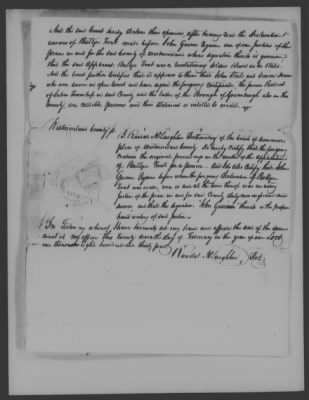 And the said Court hereby declare their opinion after having had the Declaration &
answers of Phillip Trout made before John Guson Esquire one of our Justices of the
peace in and for the said County of Westmoreland whose signature thereto is genuine
that the said applicant Phillip Trout was a revolutionary soldier
And the Court further certifies that it appears to them that John
who was sworn in open Court and have signed the foregoing Certificate, the former Resident
of Salem Township in said County and the latter of the Borough of Greensburgh also in the
County, are credible persons and their statement is entitled to credit.
Westmoreland County ss
I Randal McLaughlin Prothonotary of the Court of Common
pleas of Westmoreland County do hereby certify that the foregoing
contains the original proceedings in the matter of the application
of Phillip Trout for a pension. And do also certify that John
Esquire before whom the foregoing Declaration of Phillip
Trout was made, now is and at the time thereof was an acting
justice of the peace in and for said County duly commissioned and
sworn and that the signature John thereto is the proper
hand writing of said Justice.
In Testimony whereof I have hereunto set my hand and affixed the seal of the said
court at my office this twenty day of February in the year of our Lord
one thousand eight hundred and thirty four
Randal McLaughlin